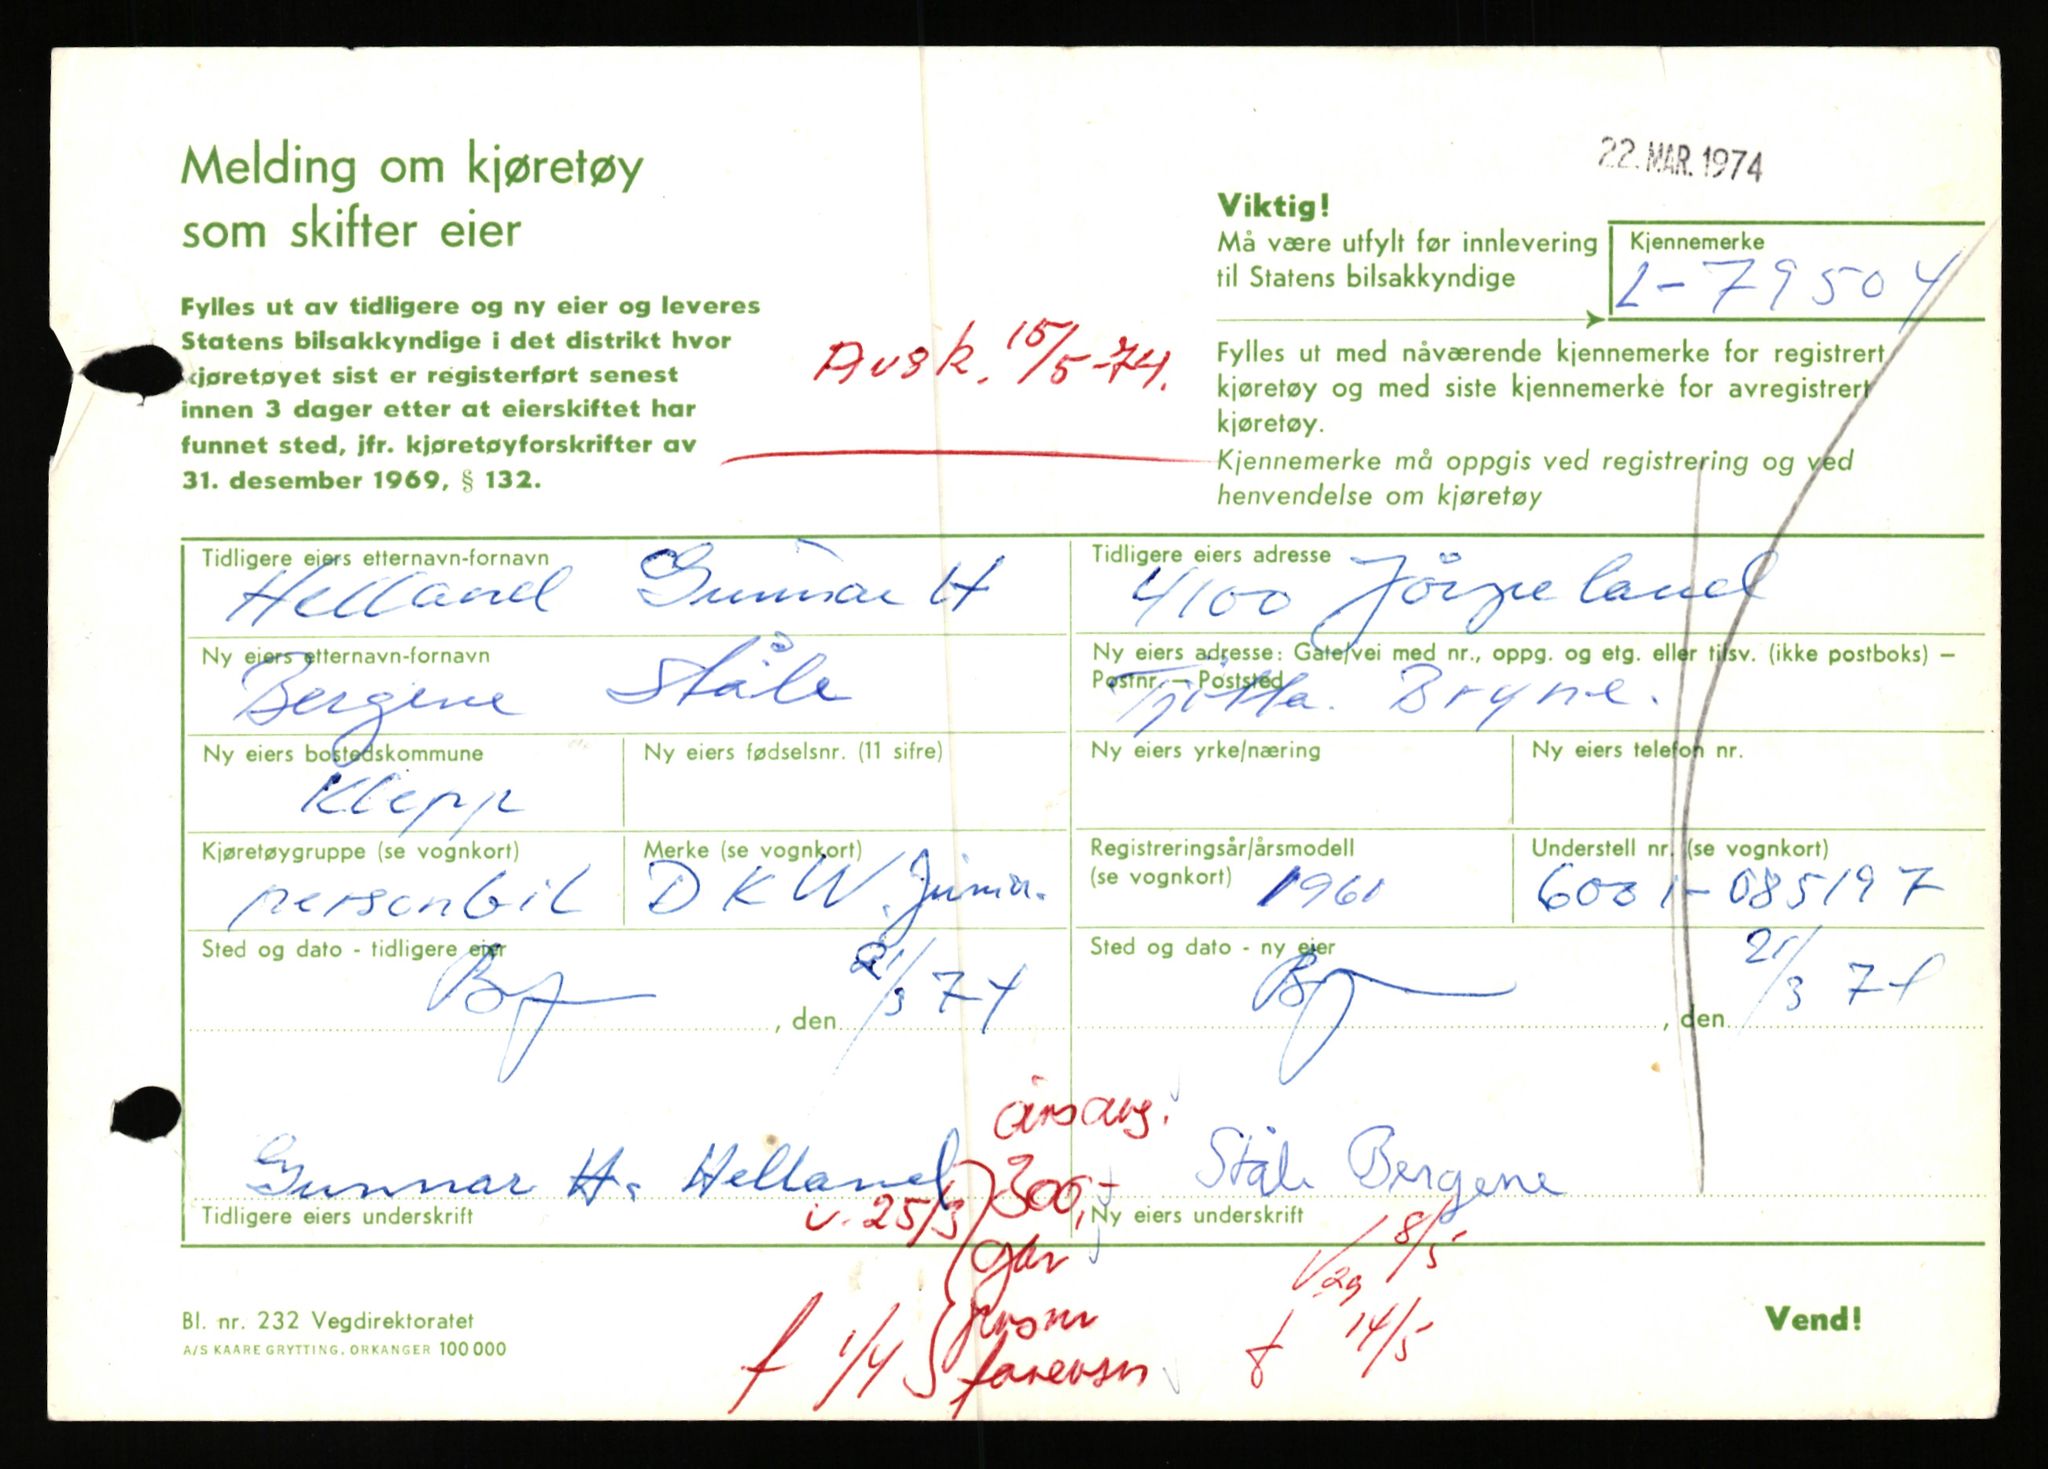 22. MAR. 1974
Melding om kjøretøy
som skifter eier
Fylles ut av tidligere og ny eier og leveres
Statens bilsakkyndige i det distrikt hvor
kjøretøyet sist er registerført senest
innen 3 dager etter at eierskiftet har
funnet sted, jfr. kjøretøyforskrifter av
31. desember 1969, § 132.
Avsk. 15/5-74.
Viktig!
Må være utfylt før innlevering
til Statens bilsakkyndige
Kjennemerke
L-79504
Fylles ut med nåværende kjennemerke for registrert
kjøretøy og med siste kjennemerke for avregistrert
kjøretøy.
Kjennemerke må oppgis ved registrering og ved
henvendelse om kjøretøy
Tidligere eiers etternavn-fornavn
Helland Gunnar H
Tidligere eiers adresse
4100 Jörpeland
Ny eiers etternavn-fornavn
Bergene Ståle
Ny eiers adresse: Gate/vei med nr., oppg. og etg. eller tilsv. (ikke postboks) –
Postnr. – Poststed
Tjøtta. Bryne.
Ny eiers bostedskommune
Klepp
Ny eiers fødselsnr. (11 sifre)
Ny eiers yrke/næring
Ny eiers telefon nr.
Kjøretøygruppe (se vognkort)
personbil
Merke (se vognkort)
DKW. Junior.
Registreringsår/årsmodell
(se vognkort)
1961
Understell nr. (se vognkort)
6001-085197
Sted og dato - tidligere eier
, den 21/3 74
Sted og dato - ny eier
, den 21/3 74
Gunnar H. Helland
Tidligere eiers underskrift
Ståle Bergene
Ny eiers underskrift
årsavg.
300,-
v. 25/3
f 1/4
18/5
14/5
Bl. nr. 232 Vegdirektoratet
A/S KAARE GRYTTING. ORKANGER 100 000
Vend!